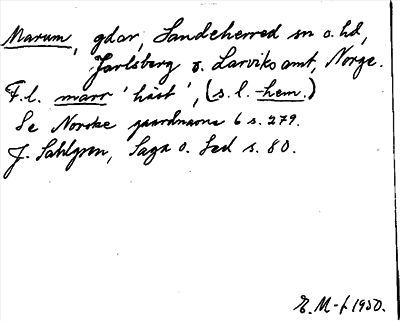 Marum, gdar, Sandeherred sn o. hd,
Jarlsberg o. Larviks amt, Norge.
F.l. marr 'häst', (s.l. -hem.)
Se Norske gaardnavne 6 s. 279.
J. Sahlgren, Saga o. Sed s. 80.
E. M-f 1950.